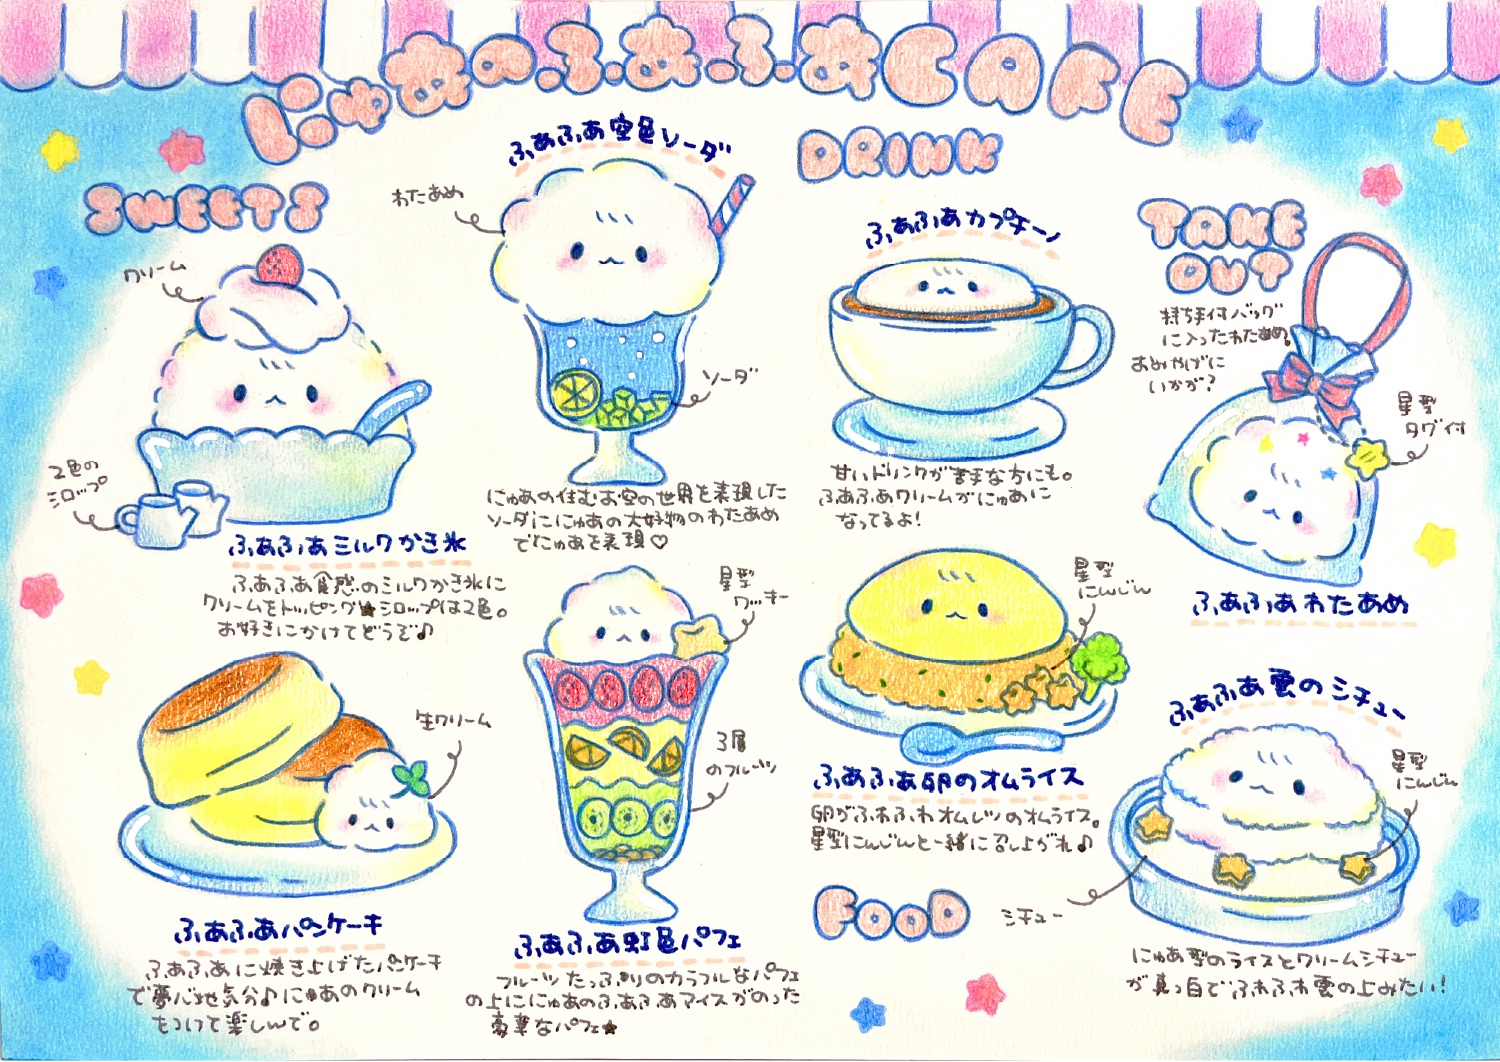 にゅあの.ふ.あ.ふ.あCAFE
SWEETS
クリーム
2色の
シロップ
ふあふあミルクかき氷
ふあふあ食感のミルクかき氷に
クリームをトッピング★シロップは2色。
お好きにかけてどうぞ♪
生クリーム
ふあふあパンケーキ
ふあふあに焼き上げたパンケーキ
で夢心地気分♪にゅあのクリーム
をつけて楽しんで。
ふあふあ空色ソーダ
わたあめ
ソーダ
にゅあの住むお空の世界を表現した
ソーダににゅあの大好物のわたあめ
でにゅあを表現♡
星型
クッキー
3層
のフルーツ
ふあふあ虹色パフェ
フルーツたっぷりのカラフルなパフェ
の上ににゅあのふあふあアイスがのった
豪華なパフェ★
DRINK
ふあふあカプチーノ
甘いドリンクが苦手な方にも。
ふあふあクリームがにゅあに
なってるよ!
星型
にんじん
ふあふあ卵のオムライス
卵がふわふわオムレツのオムライス。
星型にんじんと一緒に召し上がれ♪
FOOD
TAKE
OUT
持ち手付バッグ
に入ったわたあめ。
おみやげに
いかが?
星型
タグ付
ふあふあわたあめ
ふあふあ雲のシチュー
星型
にんじん
シチュー
にゅあ型のライスとクリームシチュー
が真っ白でふわふわ雲の上みたい!